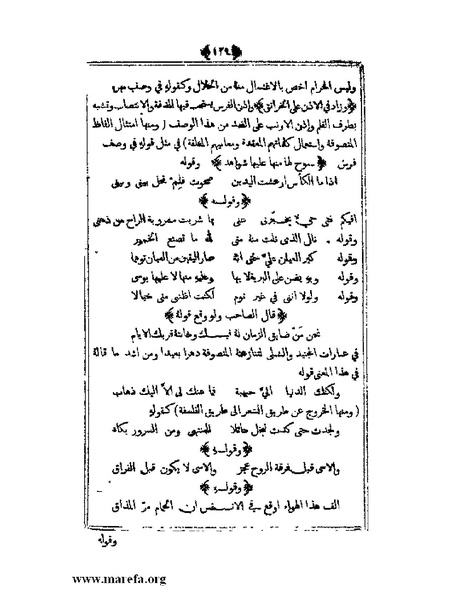 ﴿١٢٩﴾
وليس الحرام اخص بالاغتسال منه من الحلال وكقوله في وصف مهر
﴿وزاد في الاذن على الخرانق﴾ واذن الفرس يستحب فيها الدقة والانتصاب وتشبه
بطرف القلم واذن الارنب على الضد من هذا الوصف (ومنها امتثال الفاظ
المتصوفة واستعمال كلماتهم المعقدة ومعانيهم المغلقة) في مثل قوله في وصف
فرس ﴿سبوح لها منها عليها شواهد﴾ وقوله
اذا ما الكأس ارعشت اليدين صحوت فلم تحل بيني وبيني
﴿وقوله﴾
افيكم فتى حي يخبرني عني بما شربت مشروبة الراح من ذهني
وقوله نال الذي نلت منه مني لله ما تصنع الخمور
وقوله كبر العيان عليّ حتى انه صار اليقين من العيان توهما
وقوله وبه يضن على البرية لا بها وعليه منها لا عليها يوسى
وقوله ولولا انني في غير نوم لكنت اظنني مني خيالا
﴿قال الصاحب ولو وقع قوله﴾
نحن من ضايق الزمان له فيك وخانته قربك الايام
في عبارات الجنيد والشبلي لتنازعته المتصوفة دهرا بعيدا ومن اشد ما قاله
في هذا المعنى قوله
ولكنك الدنيا اليّ حبيبة فما عنك لي الا اليك ذهاب
(ومنها الخروج عن طريق الشعر الى طريق الفلسفة) كقوله
ولجدت حتى كدت تبخل حائلا للمنتهى ومن السرور بكاء
﴿وقوله﴾
والاسى قبل فرقة الروح عجز والاسى لا يكون قبل الفراق
﴿وقوله﴾
الف هذا الهواء اوقع في الانفس ان الحمام مرّ المذاق
وقوله
www.marefa.org